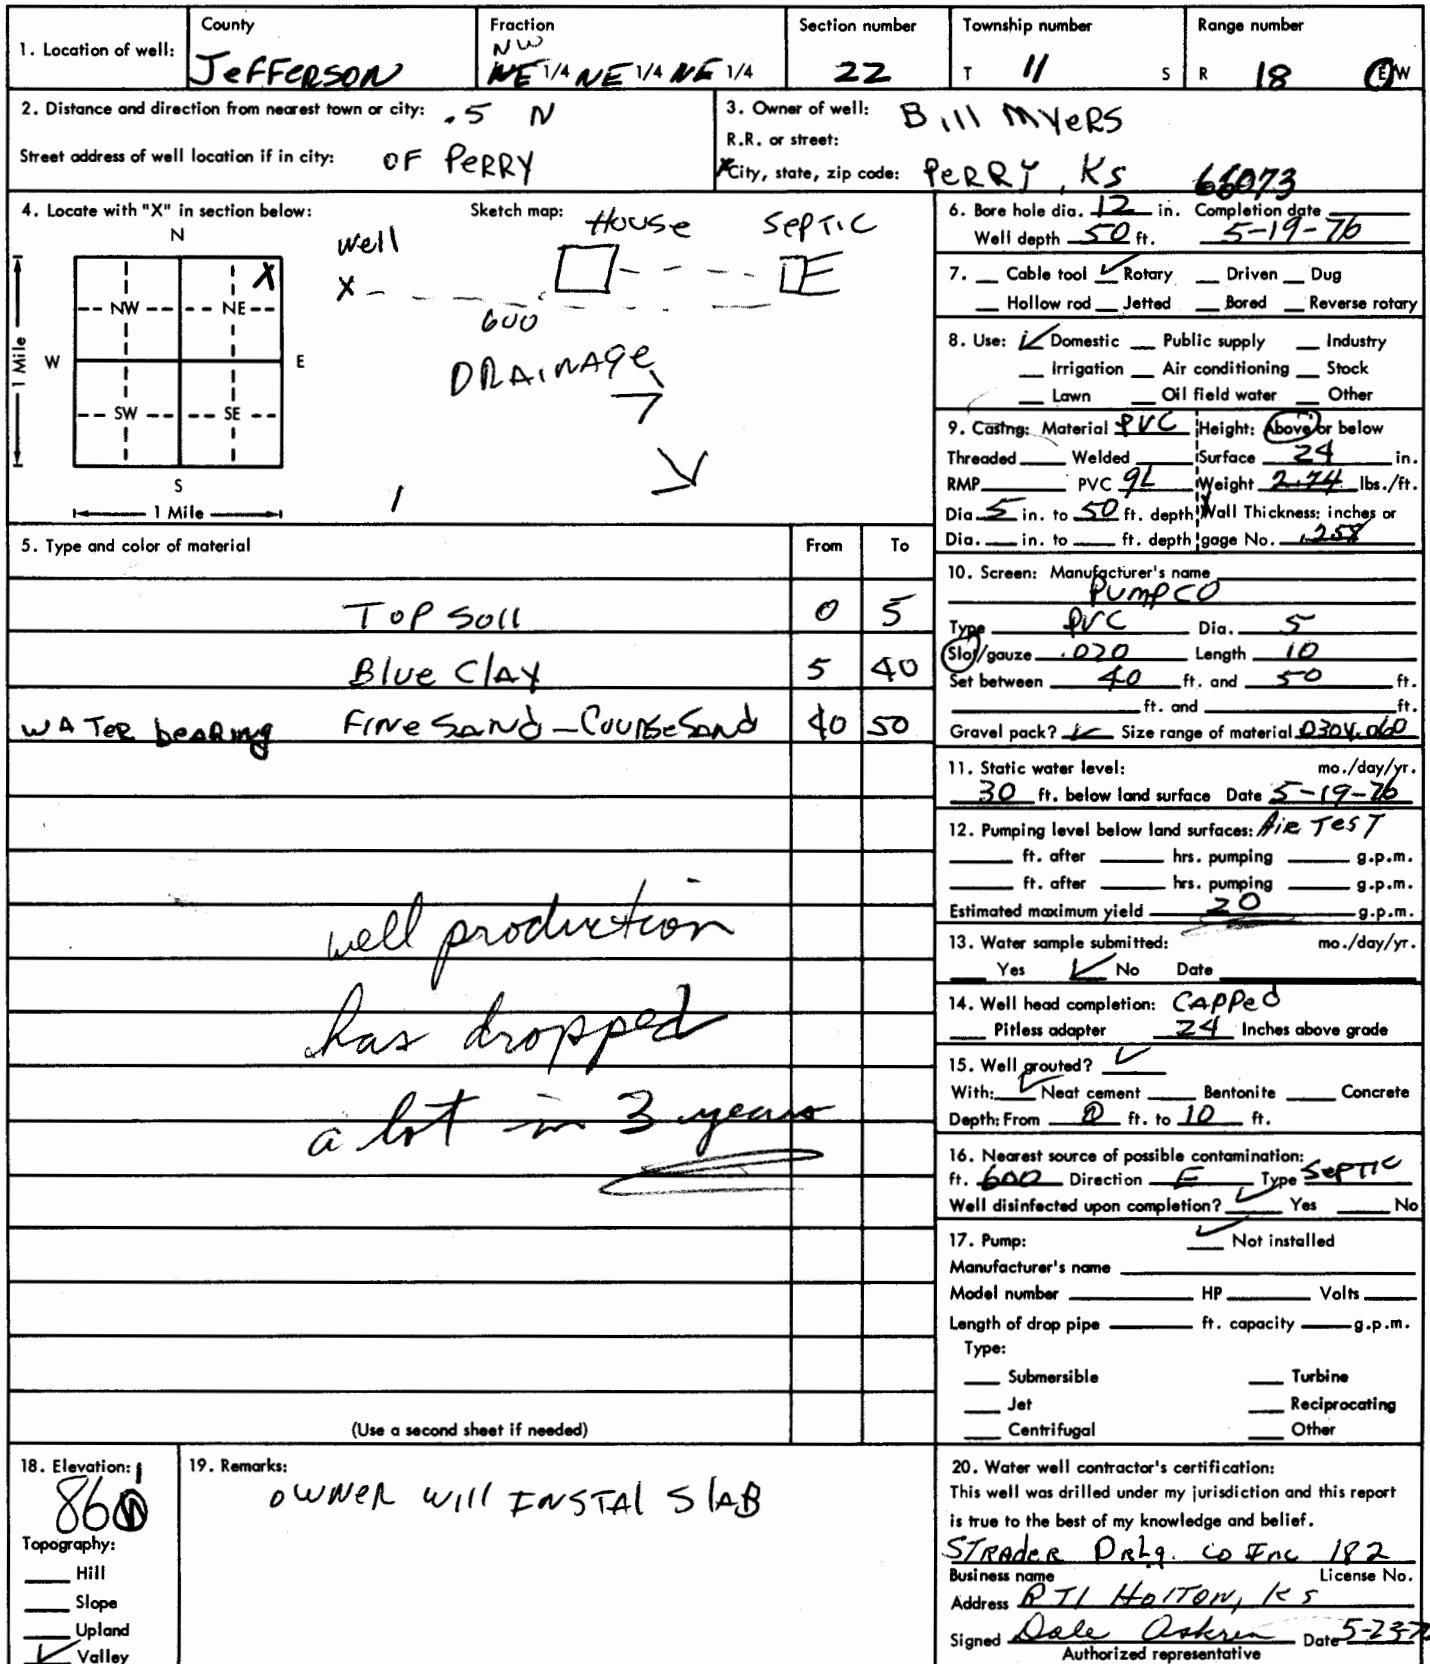 1. Location of well:
County
JeFFeRSON
Fraction
NW
NE 1/4 NE 1/4 NE 1/4
Section number
22
Township number
T 11 S
Range number
R 18 E/W
2. Distance and direction from nearest town or city: .5 N
Street address of well location if in city: OF PeRRY
3. Owner of well: Bill MYeRS
R.R. or street:
City, state, zip code: PeRRY, KS 66073
4. Locate with "X" in section below:
N
X
NW NE
W E
SW SE
S
1 Mile
1 Mile
Sketch map:
well House SepTiC
X
600
DRAiNAge
5. Type and color of material From To
Top Soil 0 5
Blue Clay 5 40
WATeR beARing Fine SANd - Course SANd 40 50
well production
has dropped
a lot in 3 years
(Use a second sheet if needed)
6. Bore hole dia. 12 in. Completion date
Well depth 50 ft. 5-19-76
7. Cable tool ✓ Rotary Driven Dug
Hollow rod Jetted Bored Reverse rotary
8. Use: ✓ Domestic Public supply Industry
Irrigation Air conditioning Stock
Lawn Oil field water Other
9. Casing: Material PVC Height: Above or below
Threaded Welded Surface 24 in.
RMP PVC gL Weight 2.74 lbs./ft.
Dia. 5 in. to 50 ft. depth Wall Thickness: inches or
Dia. in. to ft. depth gage No. .258
10. Screen: Manufacturer's name
PumpCO
Type PVC Dia. 5
Slot/gauze .020 Length 10
Set between 40 ft. and 50 ft.
ft. and ft.
Gravel pack? ✓ Size range of material
11. Static water level: mo./day/yr.
30 ft. below land surface Date 5-19-76
12. Pumping level below land surfaces: Air TesT
ft. after hrs. pumping g.p.m.
ft. after hrs. pumping g.p.m.
Estimated maximum yield 20 g.p.m.
13. Water sample submitted: mo./day/yr.
Yes ✓ No Date
14. Well head completion: CAPPed
Pitless adapter 24 Inches above grade
15. Well grouted? ✓
With: ✓ Neat cement Bentonite Concrete
Depth: From 0 ft. to 10 ft.
16. Nearest source of possible contamination:
ft. 600 Direction E Type SepTIC
Well disinfected upon completion? ✓ Yes No
17. Pump: ✓ Not installed
Manufacturer's name
Model number HP Volts
Length of drop pipe ft. capacity g.p.m.
Type:
Submersible Turbine
Jet Reciprocating
Centrifugal Other
18. Elevation:
860
Topography:
Hill
Slope
Upland
✓ Valley
19. Remarks:
OWNeR will INSTAl SlAB
20. Water well contractor's certification:
This well was drilled under my jurisdiction and this report
is true to the best of my knowledge and belief.
STRAdeR DRLg. Co Inc 182
Business name License No.
Address RT1 HolTON, KS
Signed Dale Askren Date 5-23-
Authorized representative